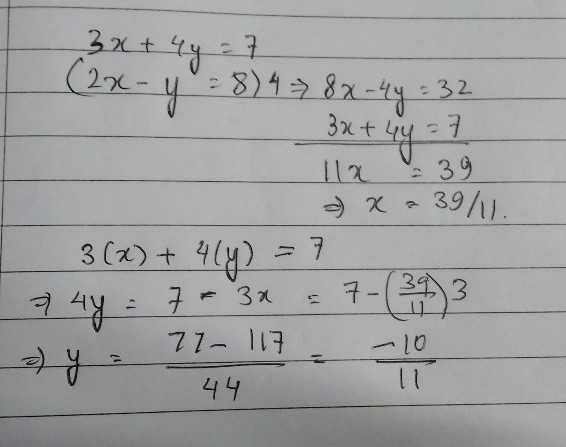 3x + 4y = 7
(2x - y = 8) 4 ⇒ 8x - 4y = 32
3x + 4y = 7
11x = 39
⇒ x = 39/11.
3(x) + 4(y) = 7
⇒ 4y = 7 - 3x = 7 - (39/11) 3
⇒ y = (77 - 117)/44 = -10/11